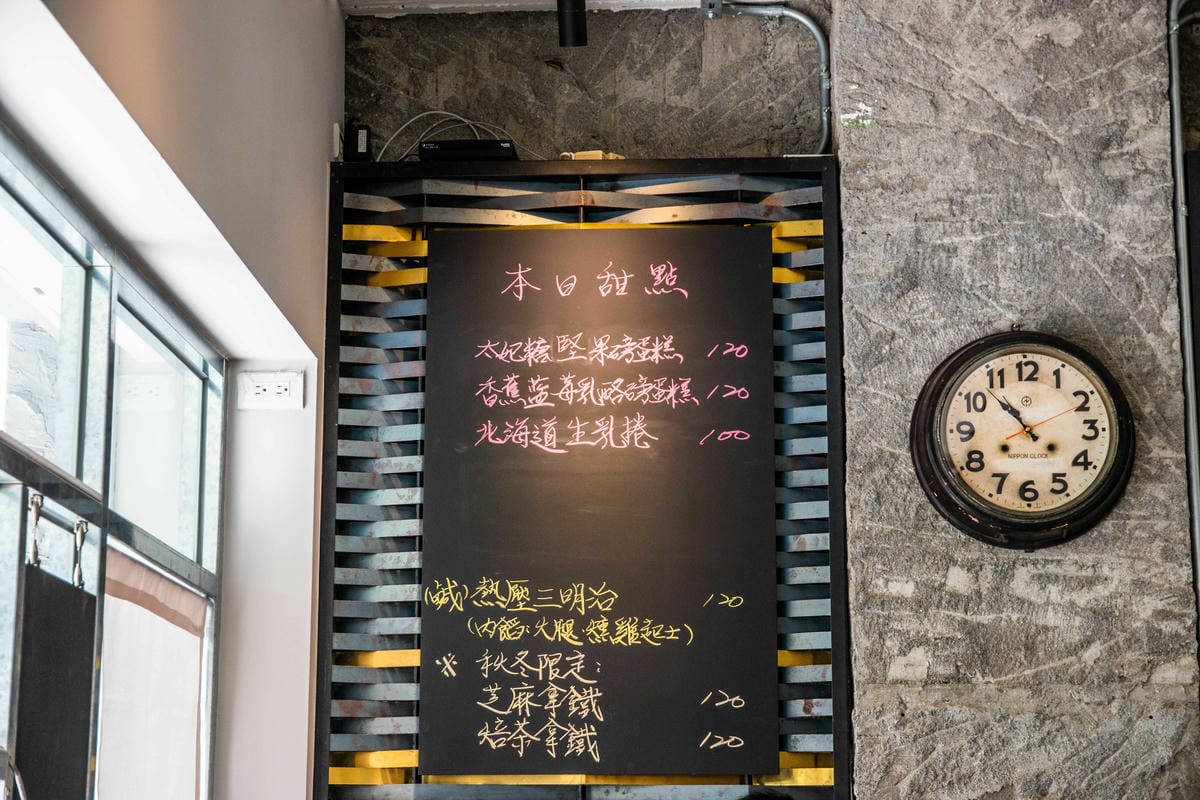 本日甜點
太妃糖堅果磅蛋糕 120
香蕉蓝莓乳酪磅蛋糕 120
北海道生乳捲 100
(鹹)熱壓三明治 120
(內餡:火腿.燻雞起士)
※ 秋冬限定:
芝麻拿鐵 120
焙茶拿鐵 120
12
1
2
3
4
5
6
7
8
9
10
11
NIPPON CLOCK